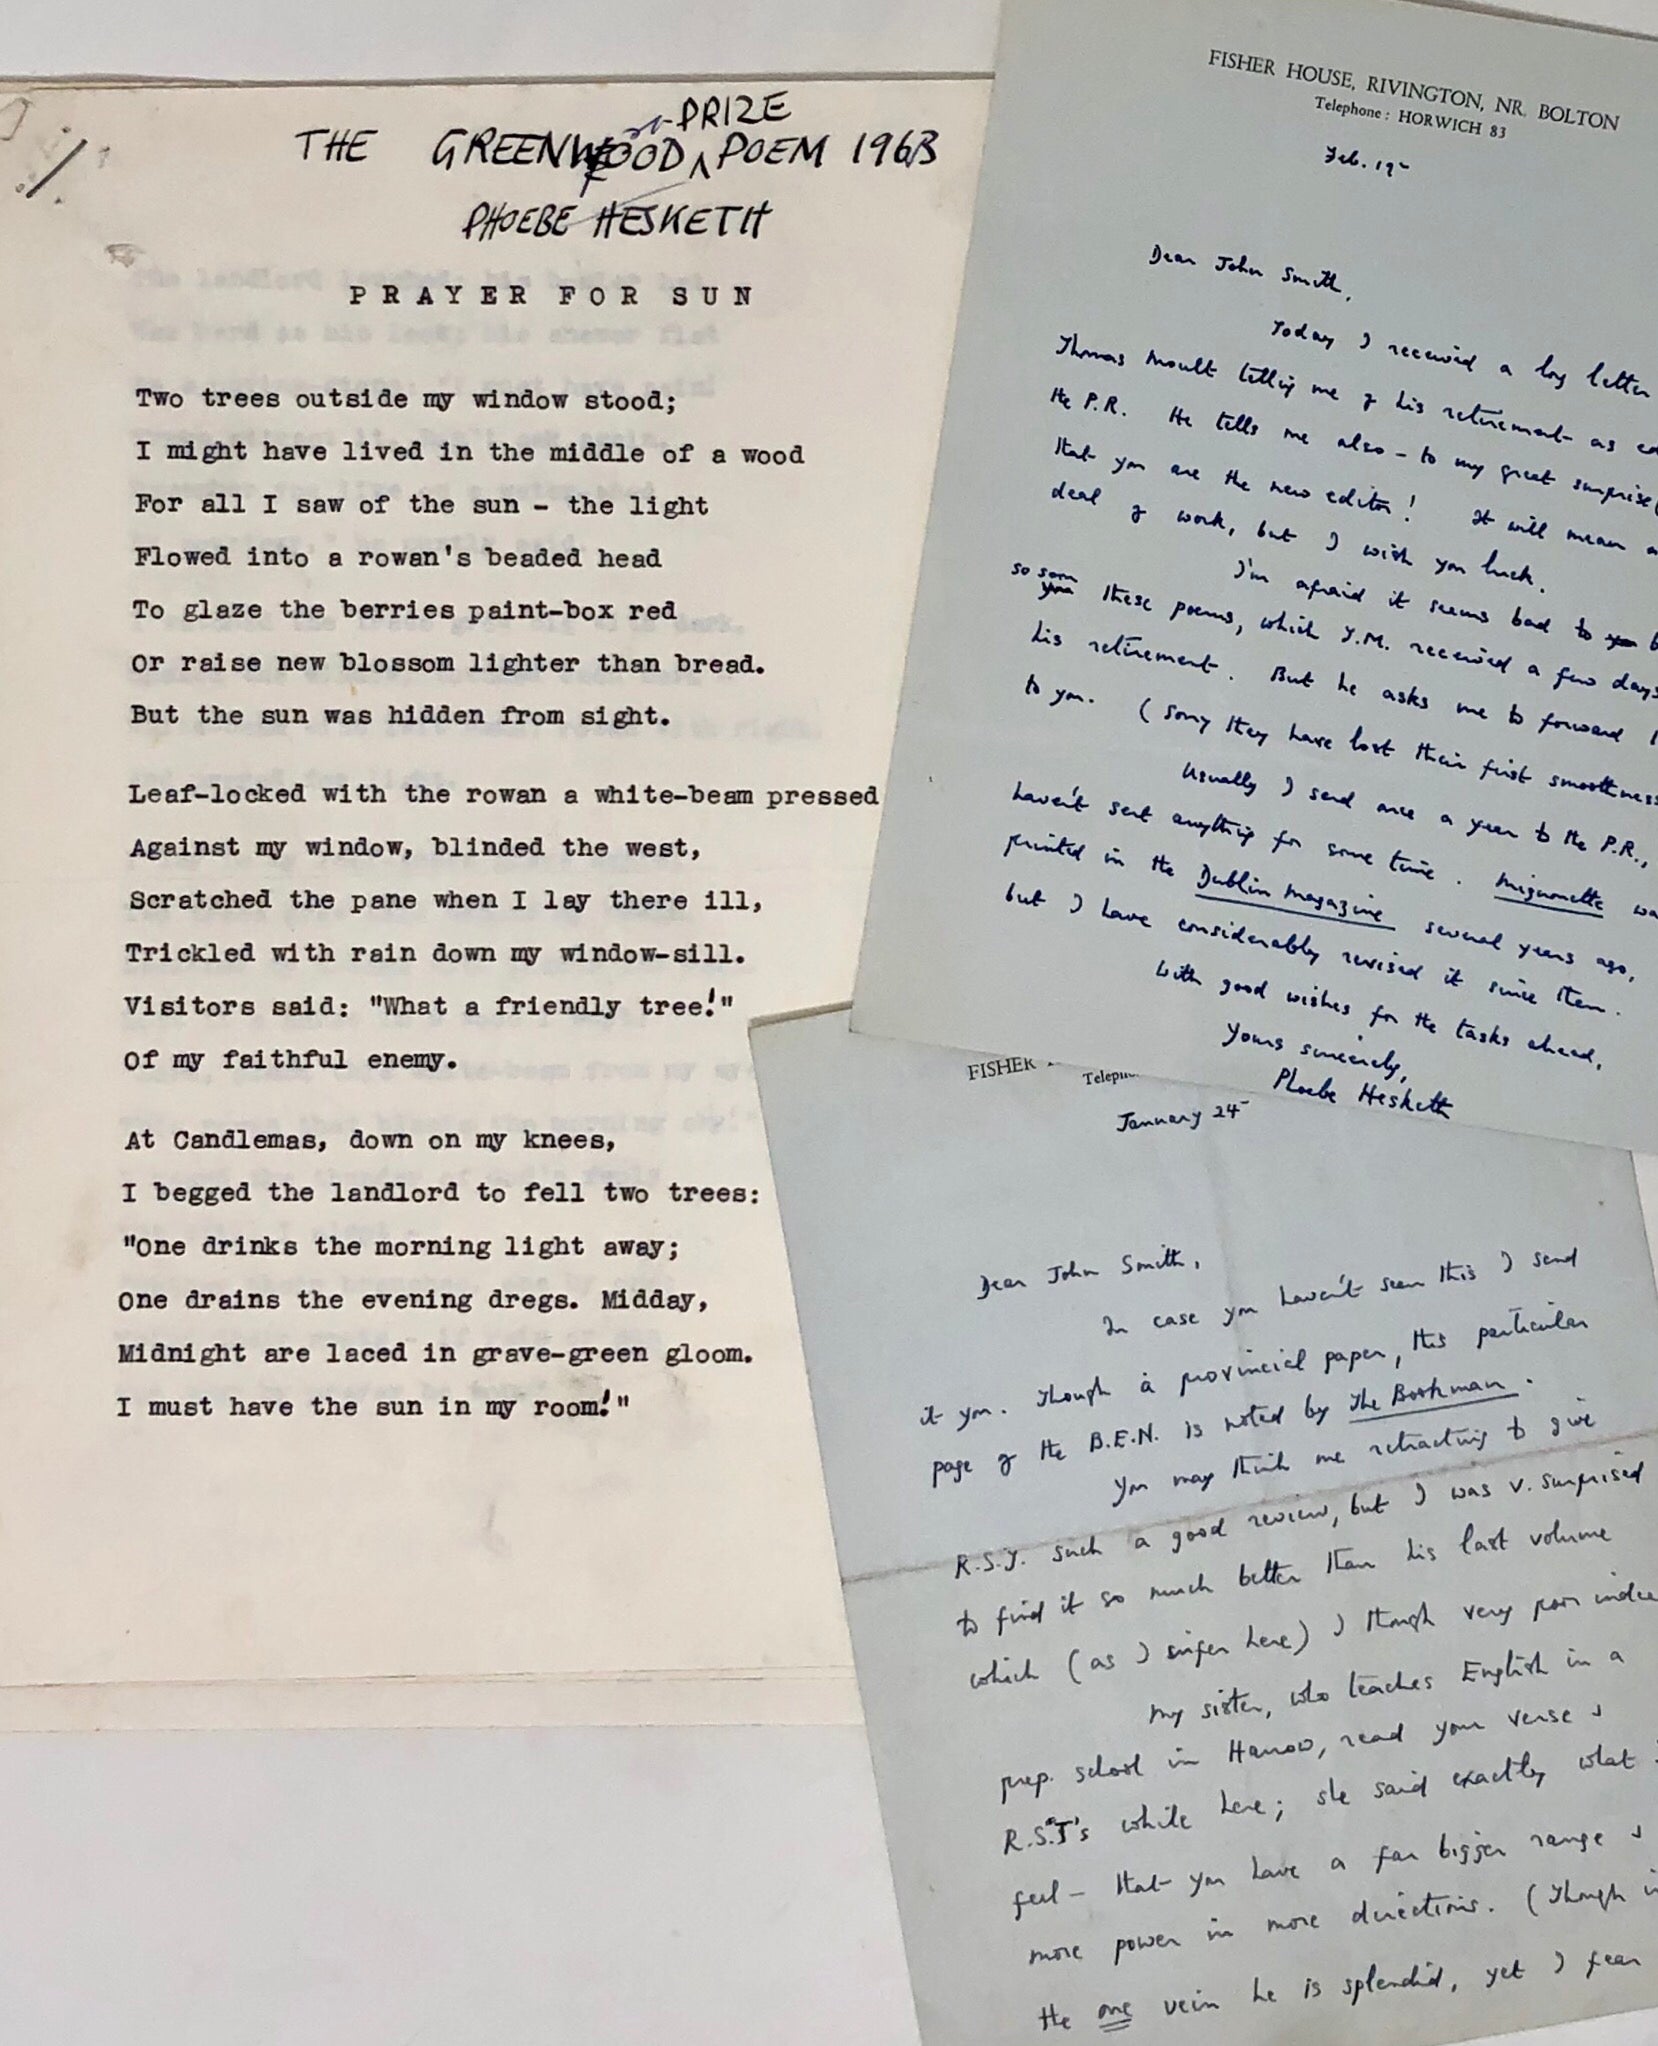 THE GREENWOOD PRIZE POEM 1963
PHOEBE HESKETH
PRAYER FOR SUN
Two trees outside my window stood;
I might have lived in the middle of a wood
For all I saw of the sun - the light
Flowed into a rowan's beaded head
To glaze the berries paint-box red
Or raise new blossom lighter than bread.
But the sun was hidden from sight.
Leaf-locked with the rowan a white-beam pressed
Against my window, blinded the west,
Scratched the pane when I lay there ill,
Trickled with rain down my window-sill.
Visitors said: "What a friendly tree!"
Of my faithful enemy.
At Candlemas, down on my knees,
I begged the landlord to fell two trees:
"One drinks the morning light away;
One drains the evening dregs. Midday,
Midnight are laced in grave-green gloom.
I must have the sun in my room!"
FISHER HOUSE, RIVINGTON, NR. BOLTON
Telephone: HORWICH 83
Feb. 19
Dear John Smith,
Today I received a long letter
Thomas Moult telling me of his retirement as
the P.R. He tells me also - to my great surprise
that you are the new editor! It will mean a
deal of work, but I wish you luck.
I'm afraid it seems bad to
so soon these poems, which T.M. received a few days
his retirement. But he asks me to forward
to you. (Sorry they have lost their first smoothness
Usually I send once a year to the P.R.,
haven't sent anything for some time. Mignonette
printed in the Dublin Magazine several years ago,
but I have considerably revised it since then.
With good wishes for the tasks ahead,
Yours sincerely,
Phoebe Hesketh
FISHER
January 24
Dear John Smith,
In case you haven't seen this I send
it you. Though a provincial paper, this particular
page of the B.E.N. is noted by The Bookman.
You may think me retracting to give
R.S.T. such a good review, but I was v. surprised
to find it so much better than his last volume
which (as I infer here) I though very poor
My sister, who teaches English in a
prep. school in Harrow, read your verse &
R.S.T's while here; she said exactly what
feel - that you have a far bigger range &
more power in more directions. (Though
the one vein he is splendid, yet I fear